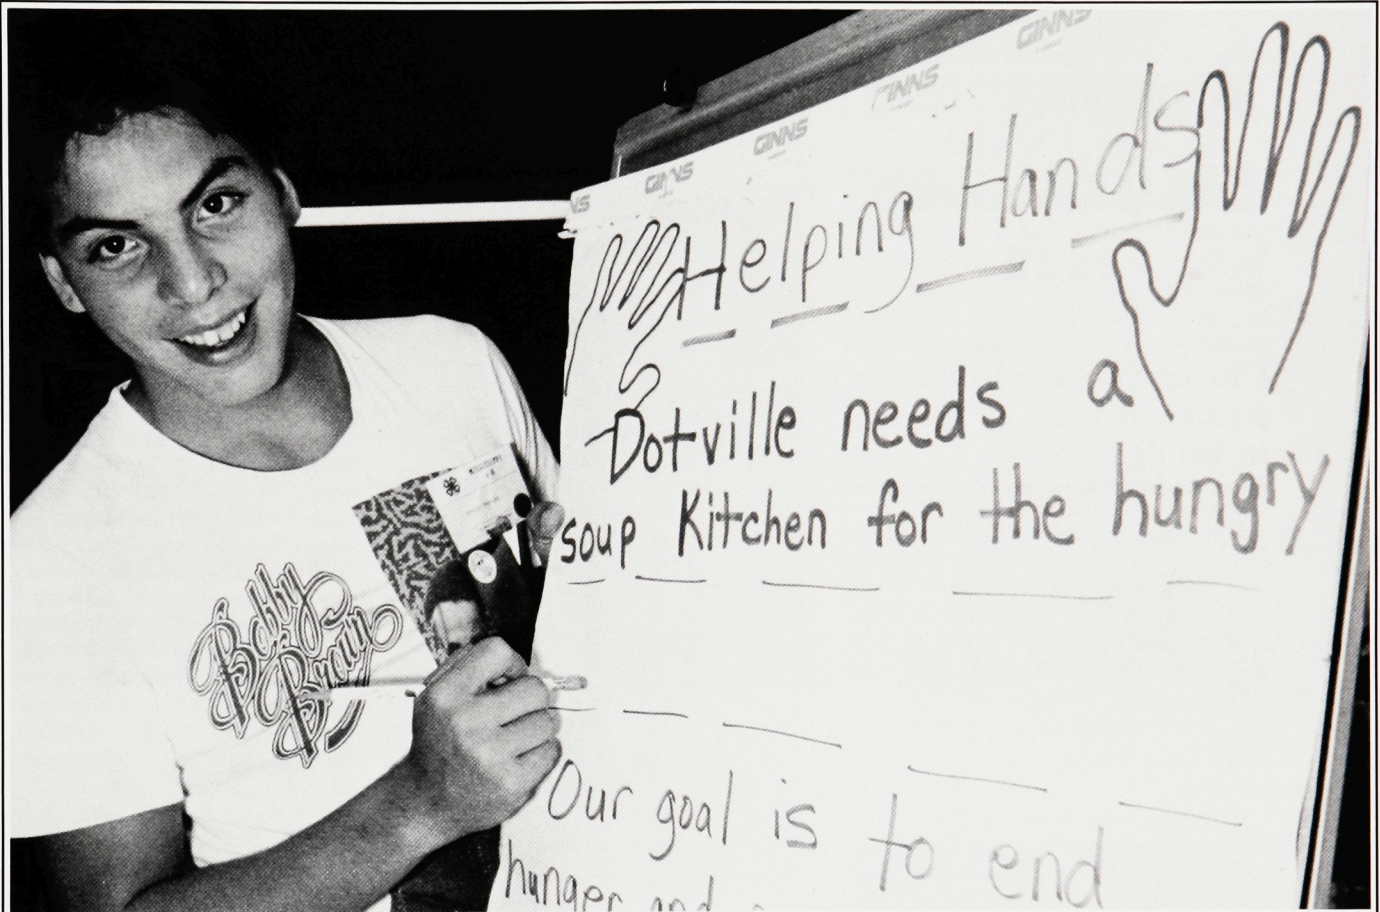 GINNS
GINNS
GINNS
GINNS
NS
Helping Hands
Dotville needs a
soup Kitchen for the hungry
Our goal is to end
hunger and
Bobby
Brown